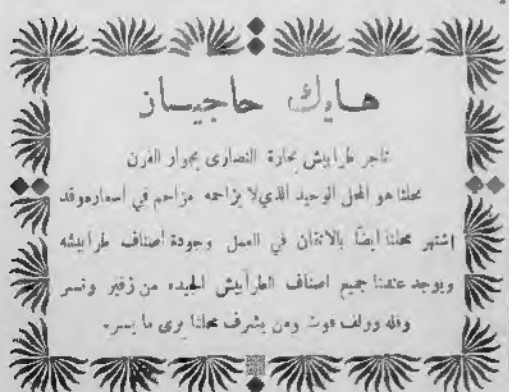 هايك حاجيان
تاجر طرابيش بحارة النصارى بجوار الفرن
محلنا هو المحل الوحيد الذي لا يزاحمه مزاحم في اسعاره وقد
إشتهر محلنا ايضاً بالاتقان في العمل وجودة أصناف طرابيشه
ويوجد عندنا جميع اصناف الطرابيش الجيده من زفير ونسر
وفله وولف فوت ومن يشرف محلنا يرى ما يسره